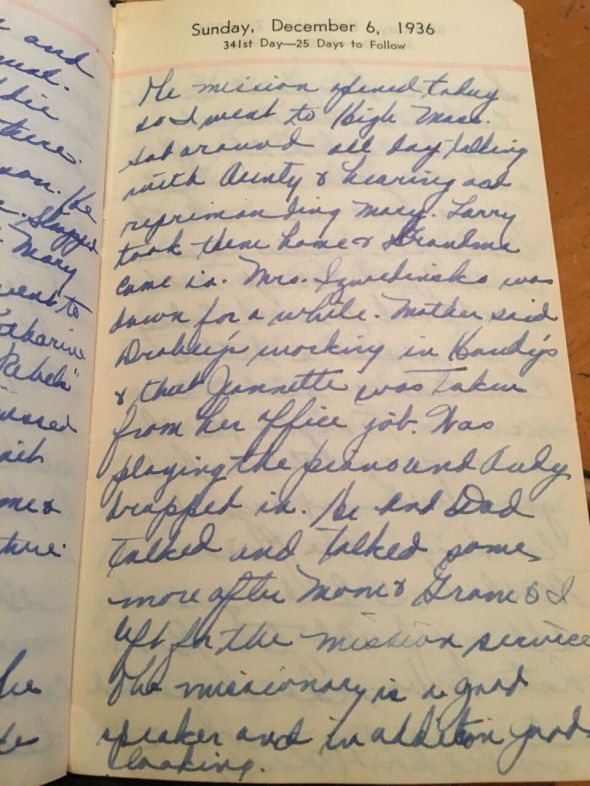 Sunday, December 6, 1936
341st Day—25 Days to Follow
The mission opened today
so I went to High Mass.
Sat around all day talking
with Aunty & hearing and
reprimanding Mary. Larry
took them home & Grandma
came in. Mrs. was
down for a while. Mother said
working in Handy's
& that Jeannette was taken
from her office job. Was
playing the piano and Andy
dropped in. He and Dad
talked and talked some
more after Mom & Gram & I
left for the mission service
The missionary is a good
speaker and in addition good
looking.
and
there.
He
Slapped
Mary
went to
Katharine
Rebels"